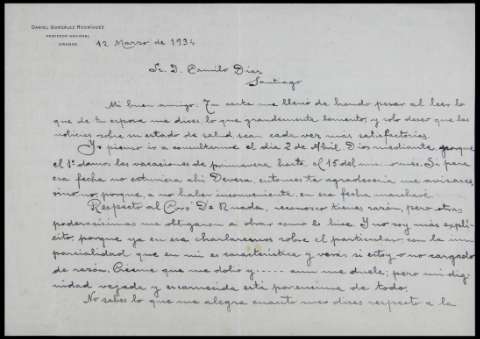 DANIEL GONZÁLEZ RODRÍGUEZ
PROFESOR NACIONAL
ORENSE
12 Marzo de 1934
Sr. D. Camilo Díaz
Santiago
Mi buen amigo: Tu carta me llenó de hondo pesar al leer lo
que de tu esposa me dices lo que grandemente lamento y solo deseo que las
noticias sobre su estado de salud sean cada vez más satisfactorias.
Yo pienso ir a consultarme el día 2 de Abril, Dios mediante, porque
el 1º damos las vacaciones de primavera hasta el 15 del mismo mes. Si para
esa fecha no estuviera ahí Devesa, entonces te agradecería me avisases,
sino no, porque, a no haber inconveniente, en esa fecha marcharé.
Respecto al Cons? De Rueda, reconozco tienes razón, pero otras
poderosísimas me obligaron a obrar como lo hice. Y no soy más explí-
cito, porque ya en esa charlaremos sobre el particular con la im-
parcialidad que en mi es característica y verás si estoy o no cargado
de razón. Créeme que me dolió y.... aun me duele; pero mi dig-
nidad vejada y escarnecida está por encima de todo.
No sabes lo que me alegra cuanto me dices respecto a la